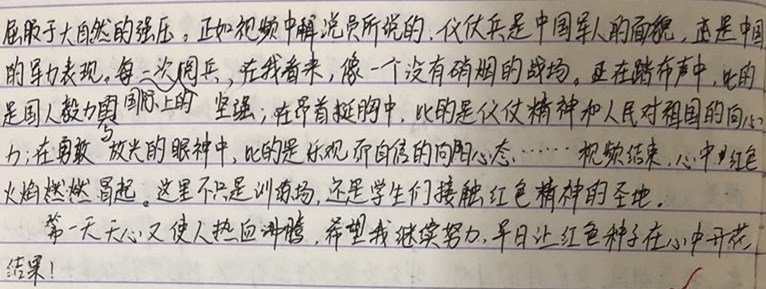 屈服于大自然的强压。正如视频中解说员所说的，仪仗兵是中国军人的面貌，更是中国
的军力表现。每一次阅兵，在我看来，像一个没有硝烟的战场。正在踏布声中，比的
是国人毅力与国际上的坚强；在昂首挺胸中，比的是仪仗精神和人民对祖国的向心
力；在勇敢放光的眼神中，比的是乐观而自信的向阳心态……视频结束，心中红色
火焰燃燃冒起。这里不只是训练场，还是学生们接触红色精神的圣地。
第一天天心又使人热血沸腾，希望我继续努力，早日让红色种子在心中开花
结果！